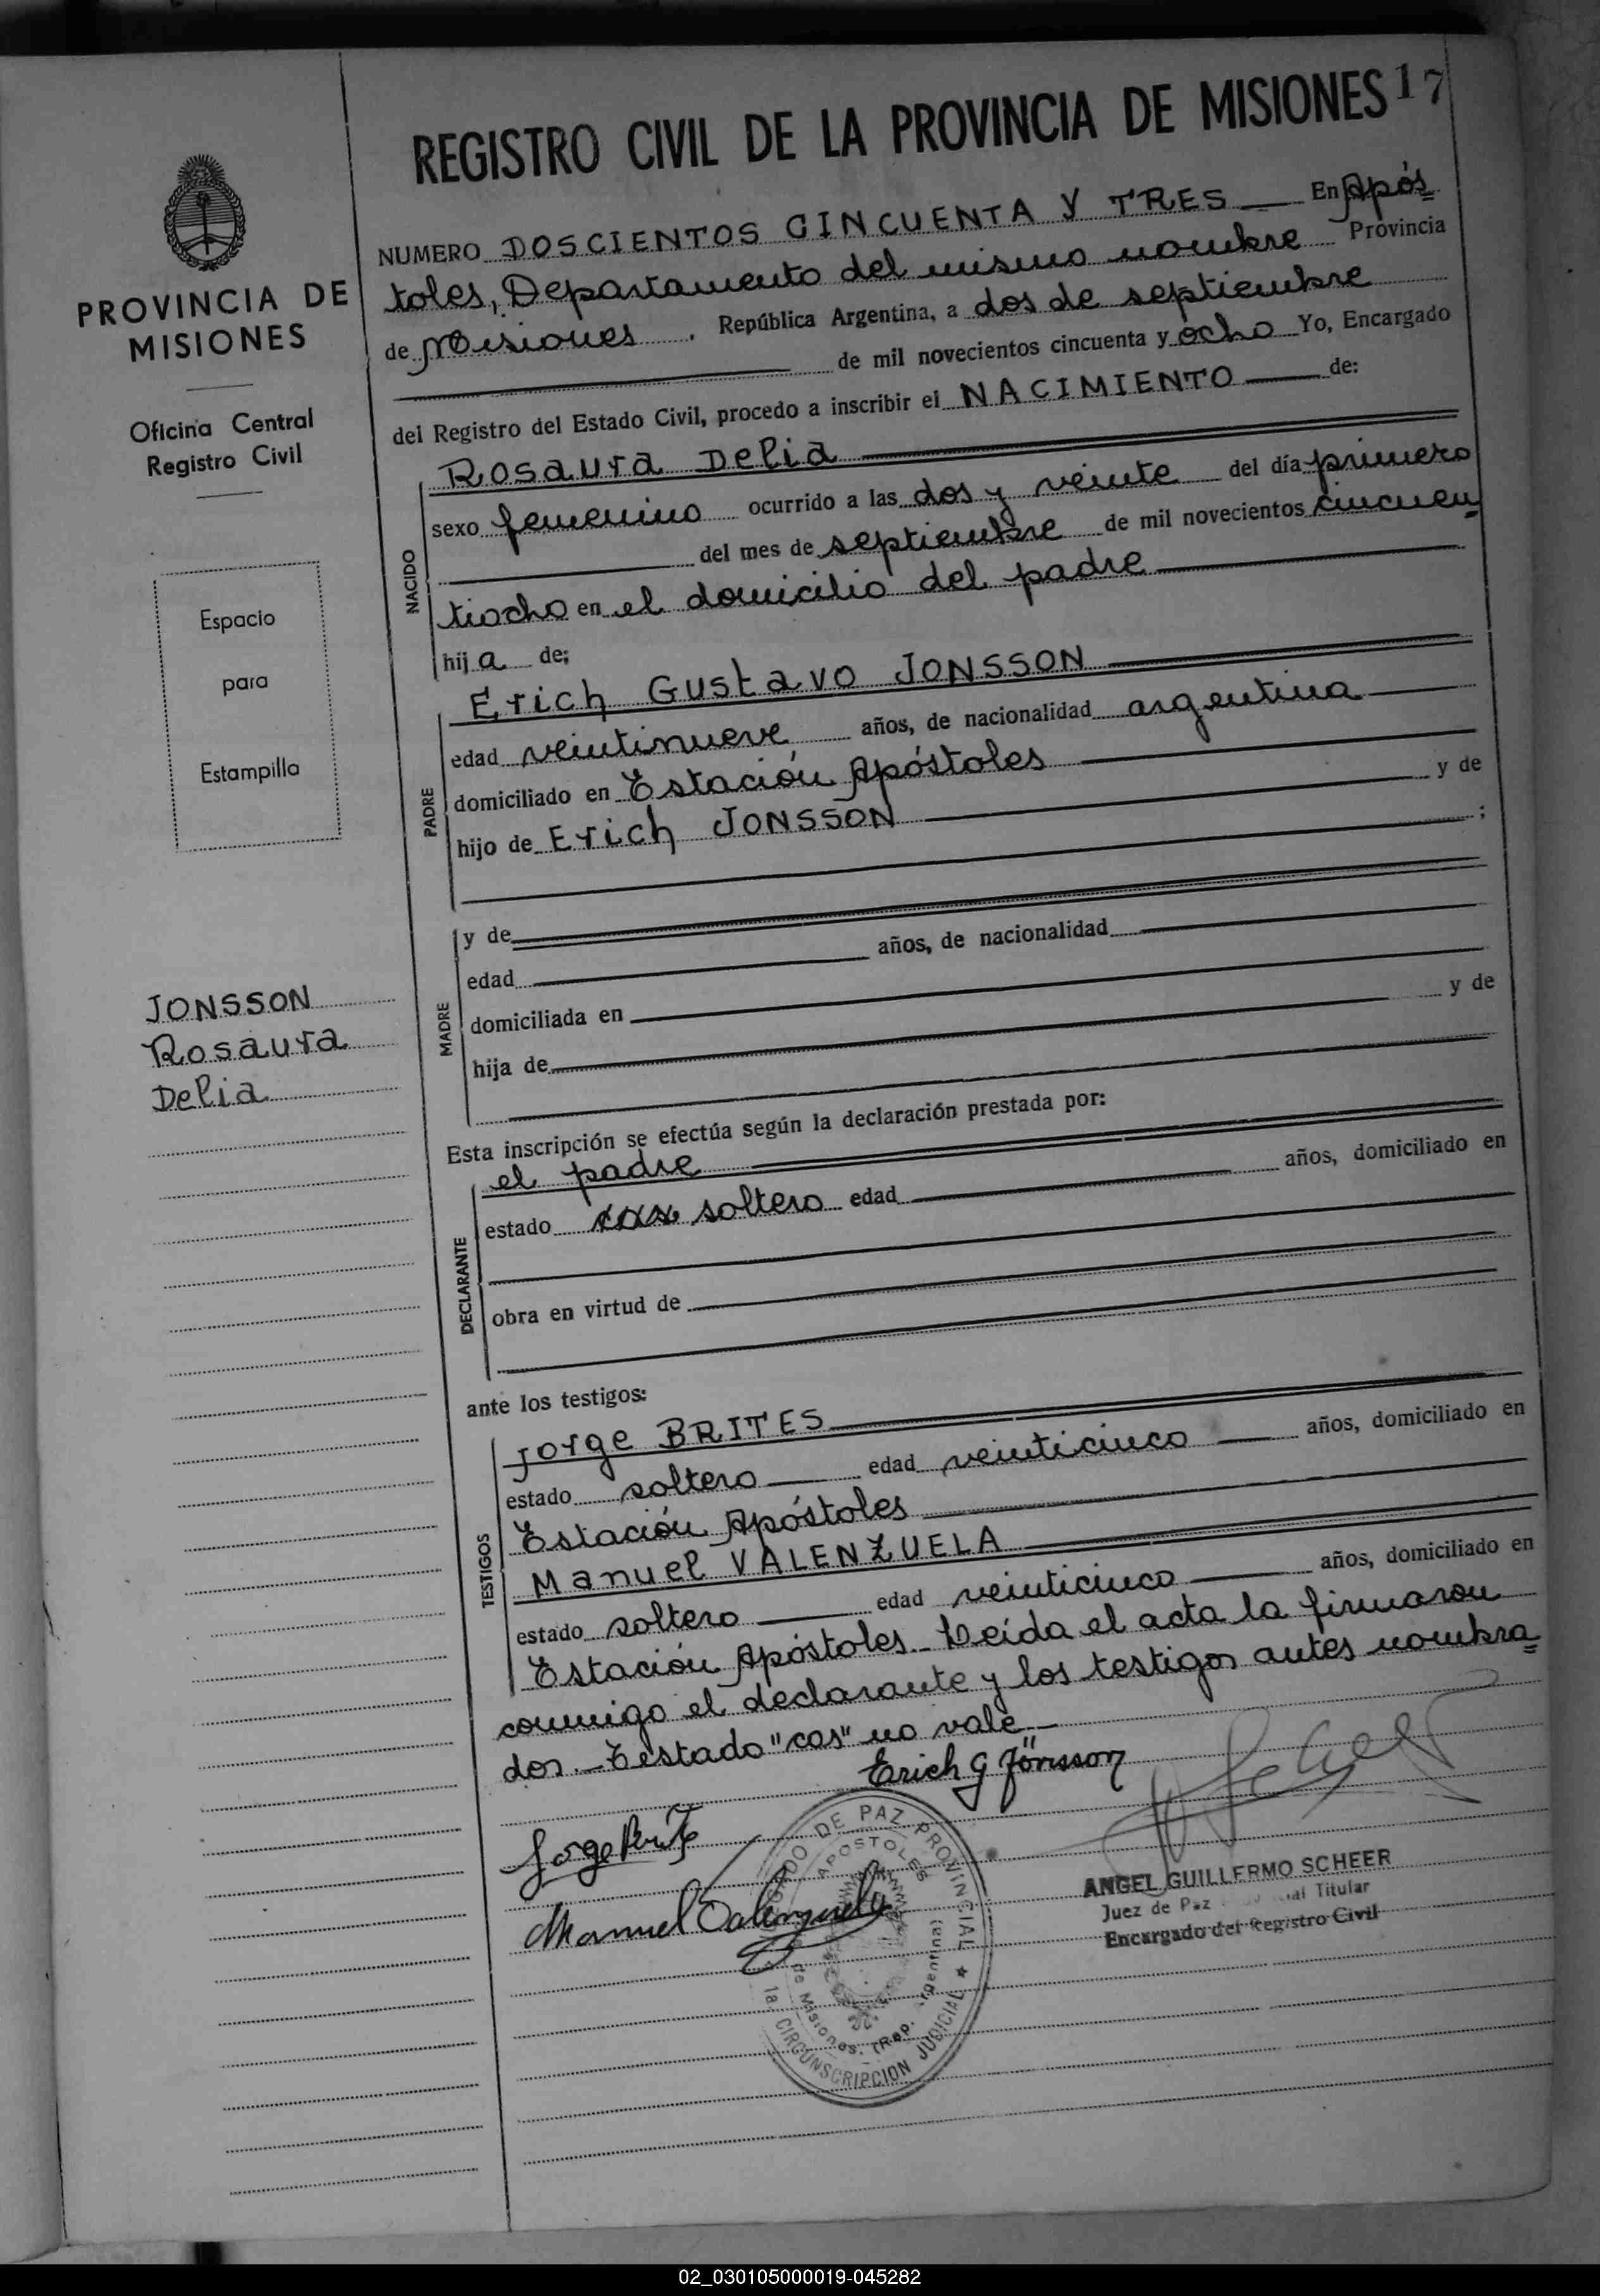 REGISTRO CIVIL DE LA PROVINCIA DE MISIONES 17
PROVINCIA DE
MISIONES
Oficina Central
Registro Civil
Espacio
para
Estampilla
JONSSON
Rosaura
Delia
NUMERO DOSCIENTOS CINCUENTA Y TRES En Após=
toles, Departamento del mismo nombre Provincia
de Misiones . República Argentina, a dos de septiembre
de mil novecientos cincuenta y ocho Yo, Encargado
del Registro del Estado Civil, procedo a inscribir el NACIMIENTO de:
NACIDO
Rosaura Delia
sexo femenino ocurrido a las dos y veinte del día primero
del mes de septiembre de mil novecientos cincuen=
tiocho en el domicilio del padre
hija de;
PADRE
Erich Gustavo JONSSON
edad veintinueve años, de nacionalidad argentina
domiciliado en Estación Apóstoles
hijo de Erich JONSSON y de
;
MADRE
y de
edad años, de nacionalidad
domiciliada en
hija de y de
Esta inscripción se efectúa según la declaración prestada por:
DECLARANTE
el padre
estado cas soltero edad años, domiciliado en
obra en virtud de
ante los testigos:
TESTIGOS
Jorge BRITES
estado soltero edad veinticinco años, domiciliado en
Estación Apóstoles
Manuel VALENZUELA
estado soltero edad veinticinco años, domiciliado en
Estación Apóstoles. Leída el acta la firmaron
conmigo el declarante y los testigos antes nombra=
dos.- Testado "cas" no vale.-
Erich G Jönsson
Jorge Brites
Manuel Valenzuela
JUZGADO DE PAZ PROVINCIAL
APOSTOLES
de Misiones. (Rep. Argentina)
1a. CIRCUNSCRIPCION JUDICIAL
ANGEL GUILLERMO SCHEER
Juez de Paz Titular
Encargado del Registro Civil
02_030105000019-045282